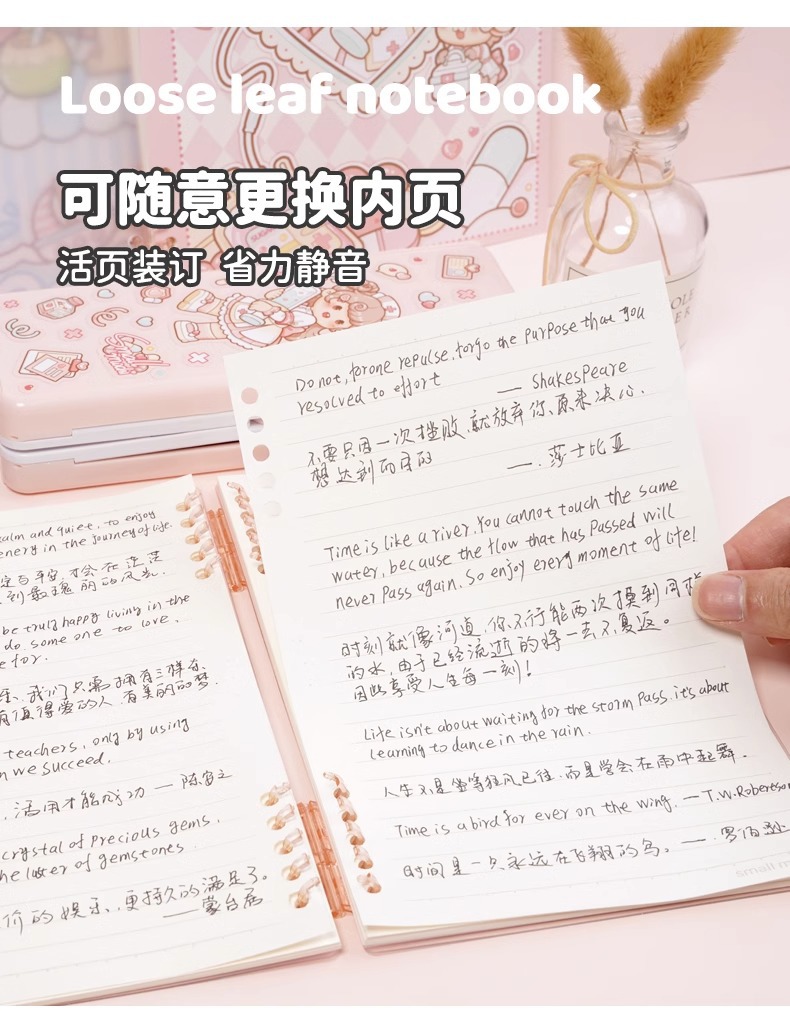 Loose leaf notebook
可随意更换内页
活页装订 省力静音
Do not, for one repulse, forgo the purpose that you
resolved to effort
— Shakespeare
不要只因一次挫败,就放弃你、原来决心、
想达到的目的
—. 莎士比亚
Time is like a river. You cannot touch the same
water, because the flow that has passed will
never pass again. So enjoy every moment of life!
时刻就像河道,你不行能两次摸到同
的水,由于已经流逝的将一去不复返。
因此享受人生每一刻!
Life isn't about waiting for the storm pass. it's about
learning to dance in the rain.
人生不是坐等狂风已往,而是学会在雨中起舞。
Time is a bird for ever on the wing. — T.W.Robertson
时间是一只永远在飞翔的鸟。—. 罗伯逊
small
calm and quiet, to enjoy
enery in the journey of life.
定与平安,才会在
到最瑰丽的风光.
be truly happy living in the
do. some one to love,
e for.
生、我们只需拥有三样东
有值得爱的人,有美丽的梦
teachers, only by using
n we succeed.
活用才能成功 — 陈安之
crystal of precious gems,
he luster of gemstones.
价的娱乐、更持久的满足了。
— 蒙台居